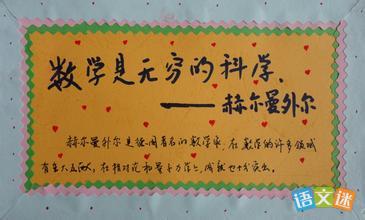 数学是无穷的科学、
——赫尔曼外尔
赫尔曼外尔是德国著名的数学家，在数学的许多领域
有重大贡献，在相对论和量子力学上，成就也十分突出。
语文迷